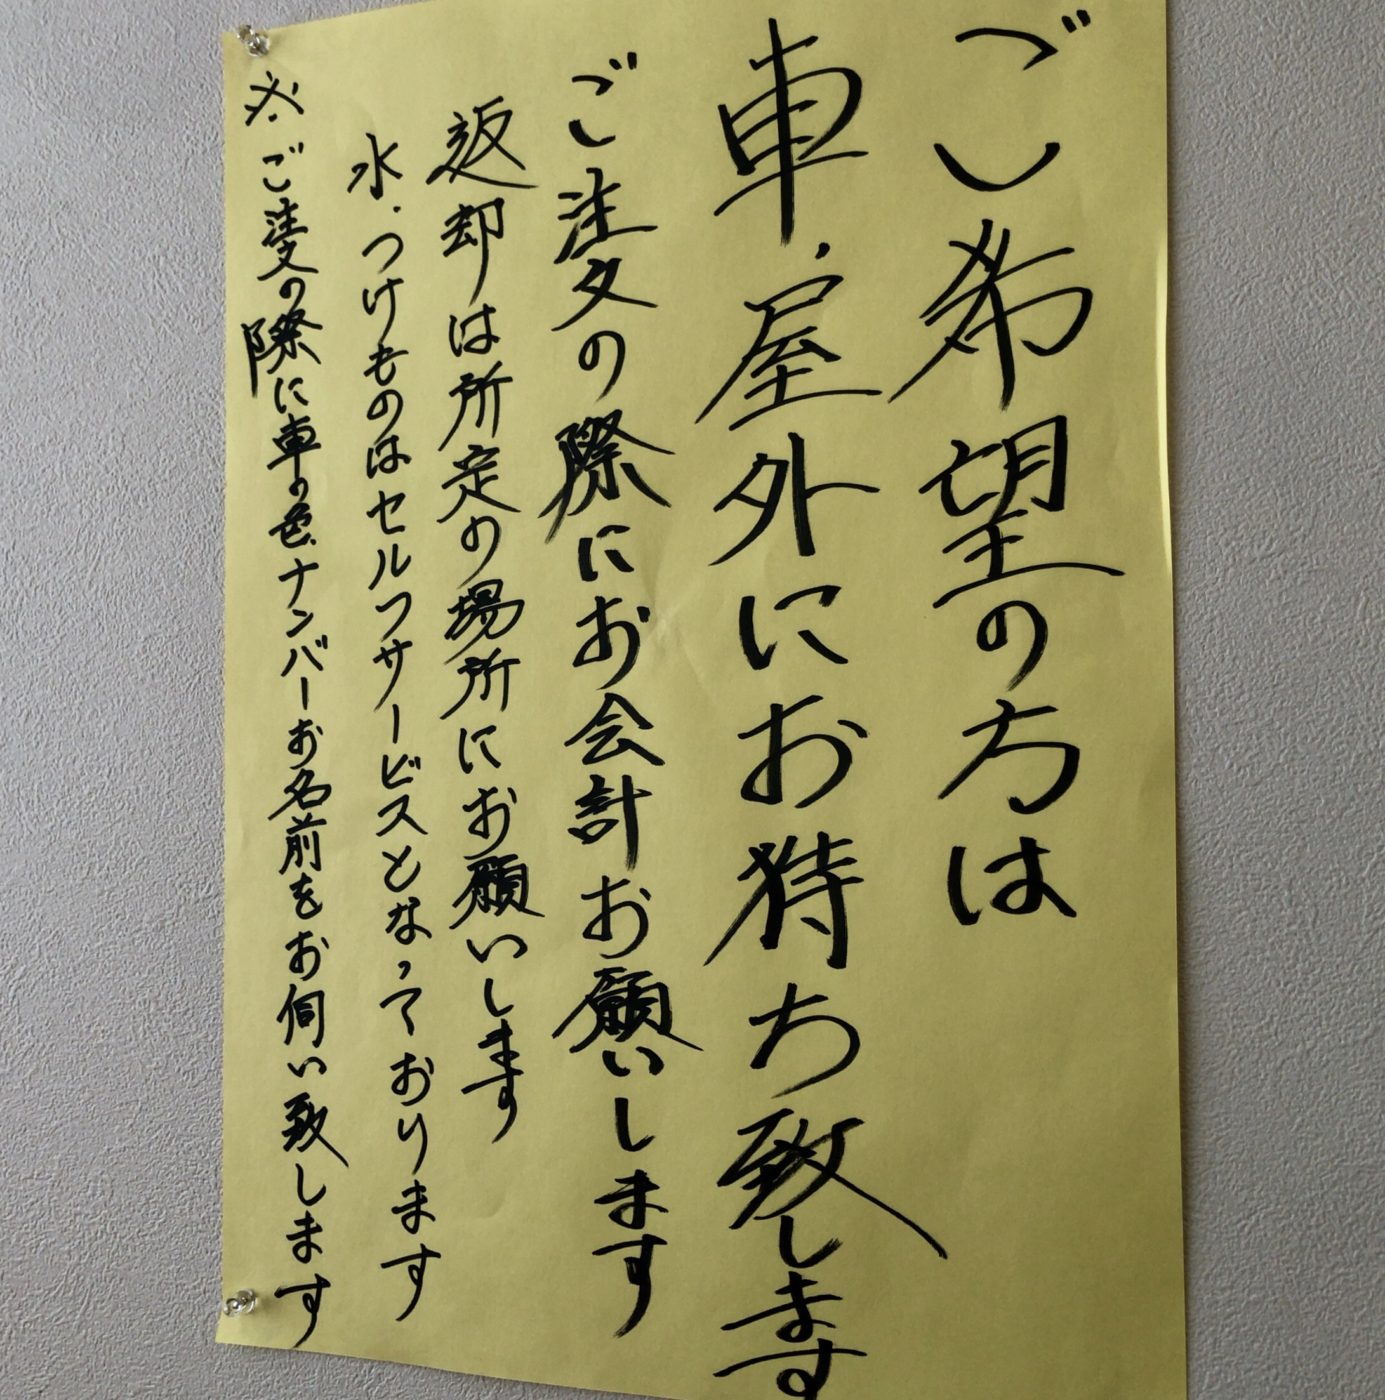 ご希望の方は
車・屋外にお持ち致します
ご注文の際にお会計お願いします
返却は所定の場所にお願いします
水・つけものはセルフサービスとなっております
※ご注文の際に車の色、ナンバーお名前をお伺い致します